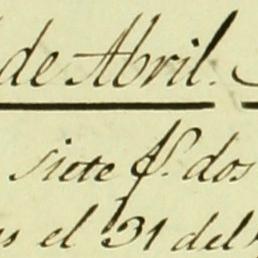 de Abril.
siete p.s dos
el 31 del